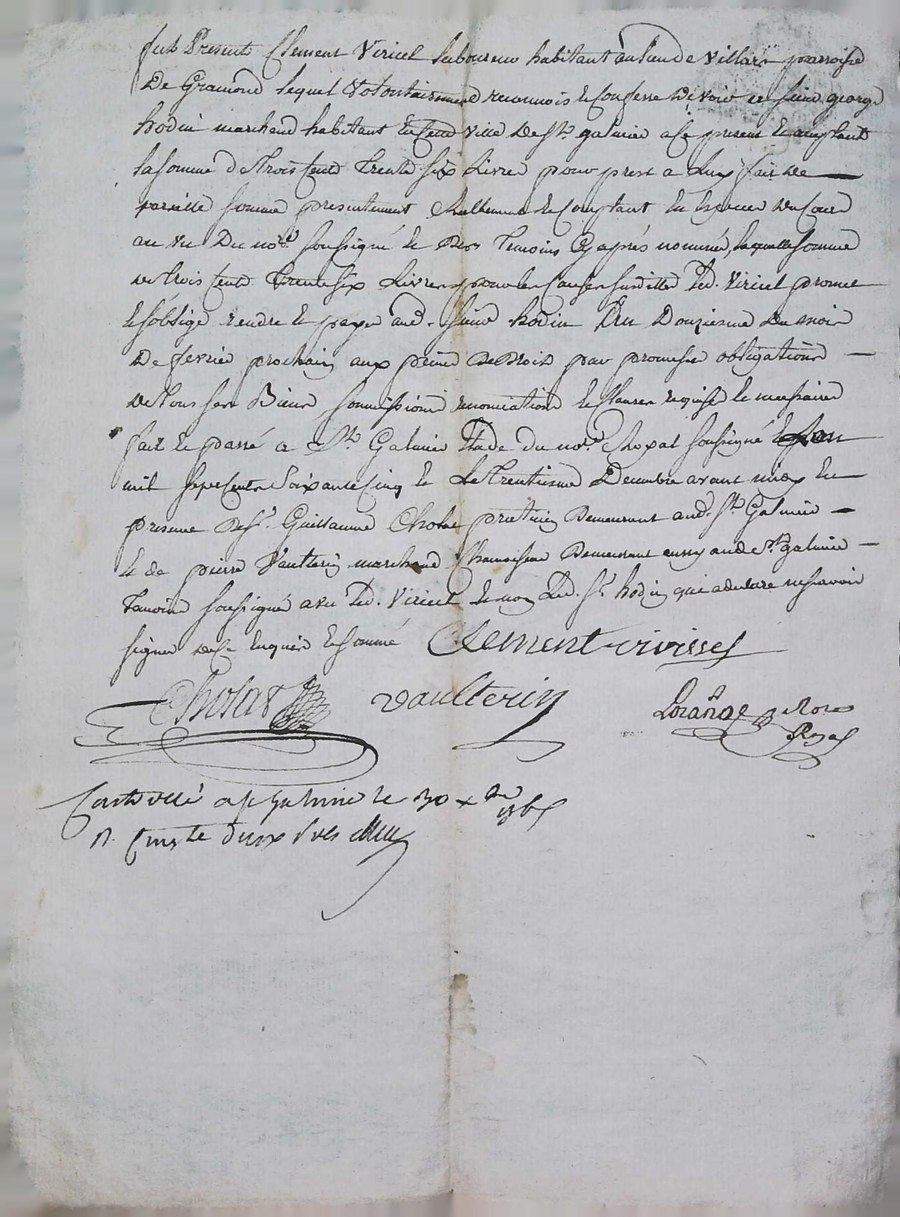 fut Present Clement Viricel laboureur habitant au lieu de Villars parroisse
De Gramond lequel Volontairement reconnois et Confesse Devoir a sieur george
hodin marchand habitant en cette ville De St. galmier a ce present et acceptant
la somme de Trois Cent Trente Six Livres pour prest a Luy fait de
pareille somme presentement Reellement et Comptant en Especes de Cour
au vu Du nore. soussigné et Des Temoins Cy après nommés, laquelle somme
de trois Cent Trente Six Livres pour les Causes susdittes Led. Viricel promet
et s'oblige rendre et payer aud. Sieur hodin Le Douzieme Du mois
De fevrier prochain aux peine de Droit par promesse obligations
de Tous ses Biens soumissions renonciations et Clauses requise et necessaire
fait et passé a St. Galmier Etude du nore. Cholat soussigné
mil sept Cents Soixante Cinq et Le Trentieme Decembre avant midy en
presence De sr. Guillaume Cholat praticien Demeurant aud. St. Galmier
et de pierre Vaulterin marchand Chamoiseur Demeurant aussy aud. St. galmier
Temoins soussignés avec Led. Viricel et non Led. sr. hodin qui a declaré ne scavoir
signer de ce Enquis et sommé Clement virissel
Cholat vaulterin Lorange nore
Royal
Controllé a st Galmier le 30 xbre
1765
R. deux